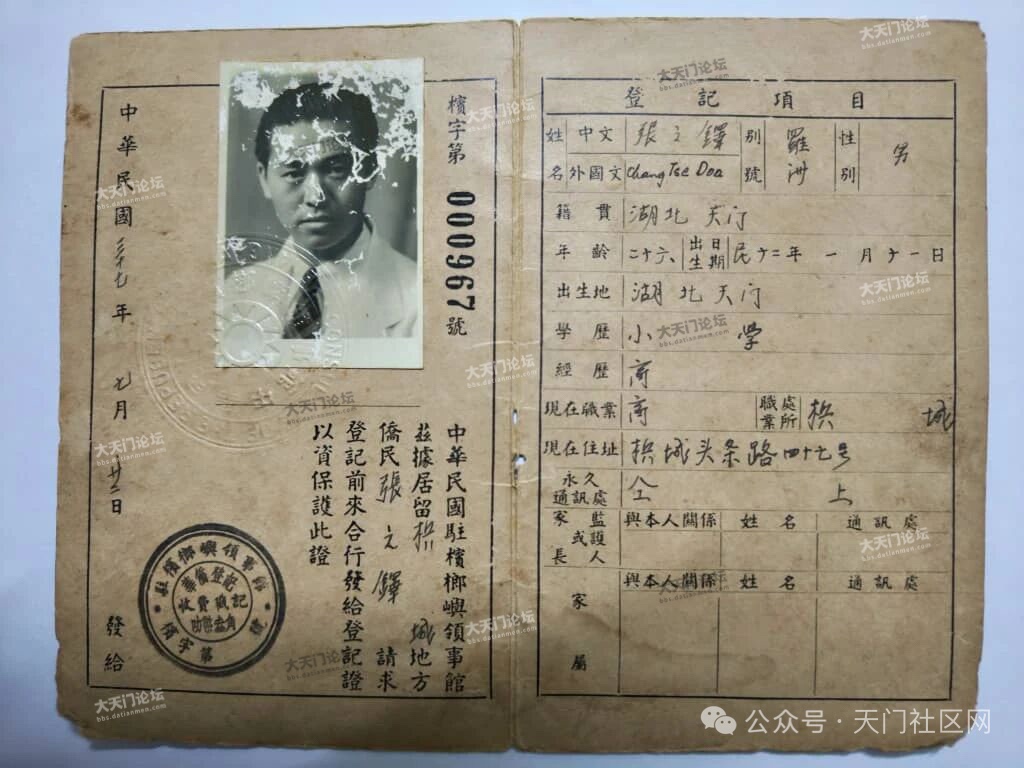 檳字第 0000967 號
中華民國駐檳榔嶼領事館
茲據居留槟城地方
僑民張之鐸請求
登記前來合行發給登記證
以資保護此證
中華民國三十七年七月廿二日發給
駐檳榔嶼領事館
華僑登記
收費戳記
檳字第 號
登記項目
姓名 中文 張之鐸 別號 羅洲 性別 男
外國文 Chang Tse Doa
籍貫 湖北天门
年齡 二十六 出生日期 民十二年一月十一日
出生地 湖北天门
學歷 小学
經歷 商
現在職業 商 職業處所 槟城
現在住址 槟城头条路四十七号
永久通訊處 仝上
家長或監護人 與本人關係 姓名 通訊處
家屬 與本人關係 姓名 通訊處
大天门论坛
bbs.datianmen.com
公众号·天门社区网